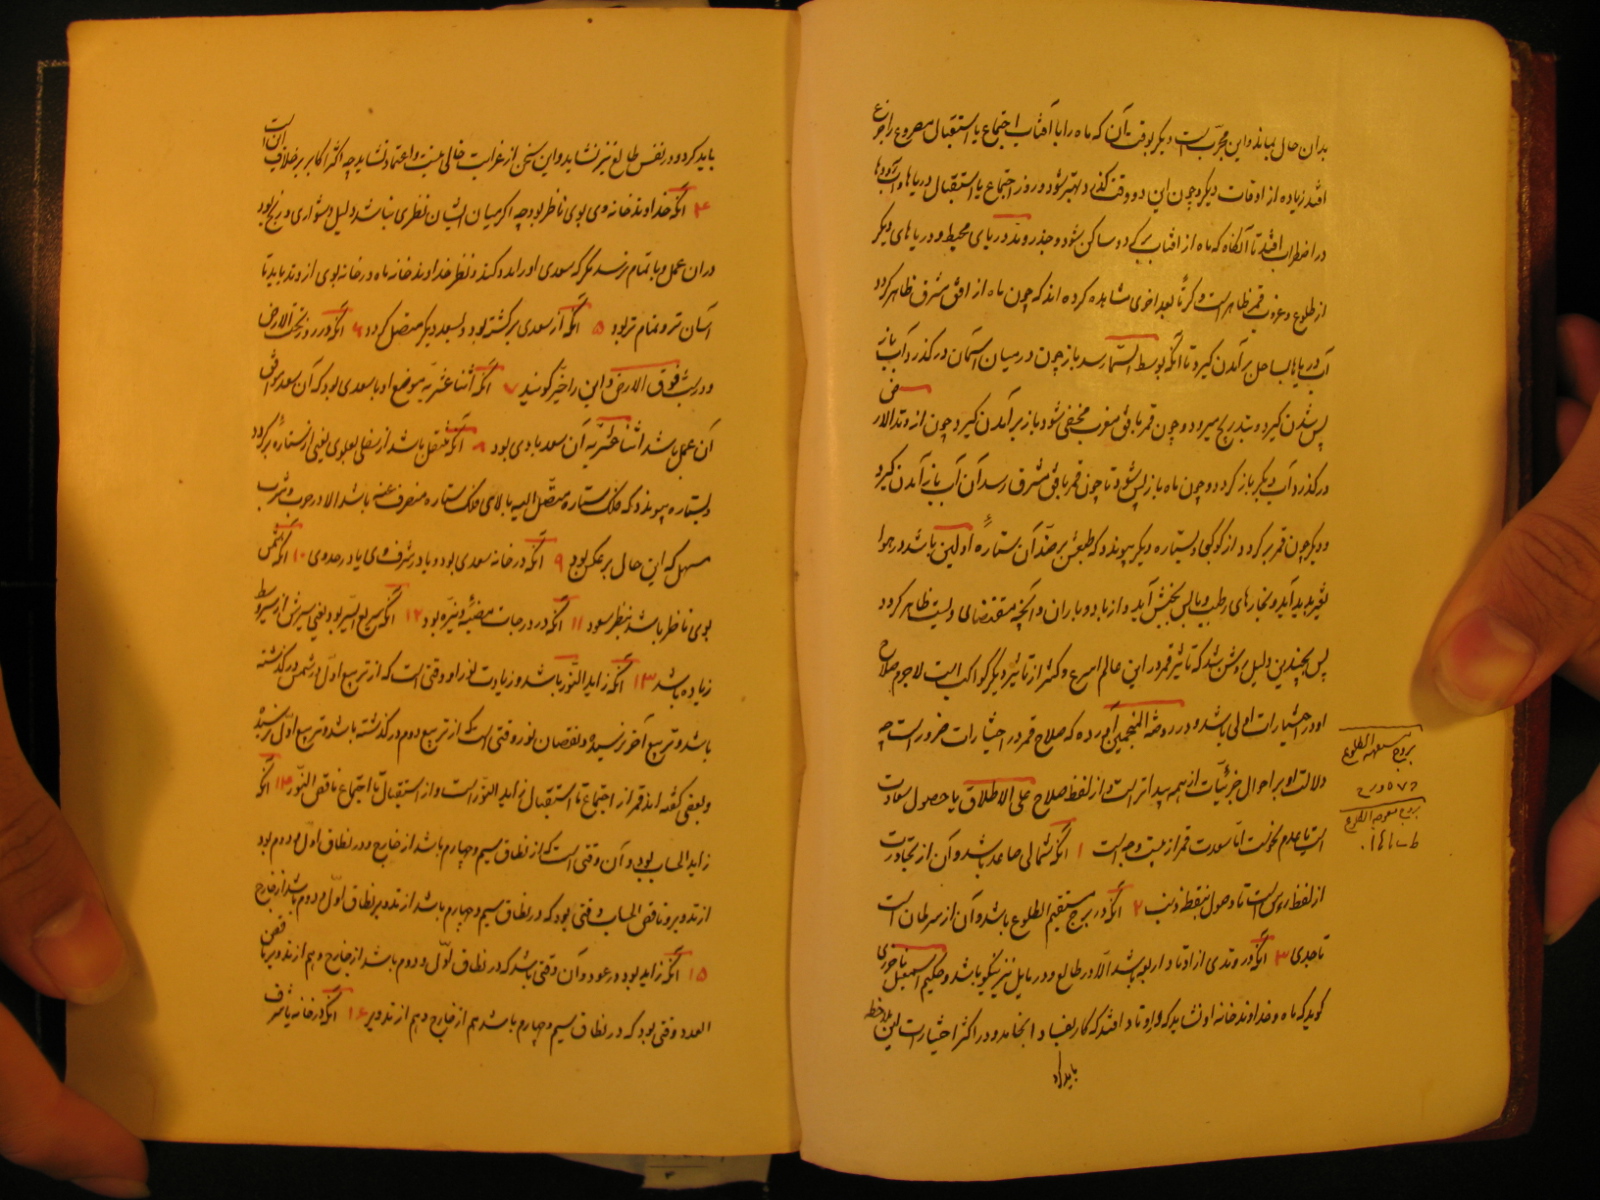 بدان حال بماند و این مجرب است دیگر بوقت آن که ماه را با آفتاب اجتماع یا استقبال مصروع را صرع
افتد زیاده از اوقات دیگر و چون این دو وقت گذرد بهتر شود و روز اجتماع یا استقبال دریاها و آب رودها
در اضطراب افتد تا آنگاه که ماه از آفتاب برگردد و ساکن شود و جذر و مد دریای محیط و دریاهای دیگر
از طلوع و غروب قمر ظاهر است و کرة بعد اخری مشاهده کرده اند که چون ماه از افق مشرق ظاهر گردد
آب دریاها بساحل برآمدن گیرد تا آنکه بوسط السما رسد باز چون در میان آسمان درگذرد آب باز
پس شدن گیرد و بتدریج میرود و چون قمر بافق مغرب مخفی شود باز برآمدن گیرد و چون از وتد الارض
درگذرد آب دیگر باز گردد و چون ماه باز پس شود تا چون قمر بافق مشرق رسد آن آب باز آمدن گیرد
و دیگر چون قمر برگردد از کوکبی و بستاره دیگر پیوندد که طبعش بر ضد آن ستارهٔ اولین باشد در هوا
تغیر پدید آید و بخارهای رطب و یابس بجنبش آید و از باد و باران و آنچه مقتضای ویست ظاهر گردد
پس بچندین دلیل روشن شد که تاثیر قمر در این عالم اسرع و اکثر از تاثیر دیگر کواکب است لاجرم صلاح
او در اختیارات اولی باشد و در روضة المنجمین آورده که صلاح قمر در اختیارات ضرور است چه
دلالت او بر احوال جزئیات از همه پیداتر است و از لفظ صلاح علی الاطلاق یا حصول سعادت
است یا عدم نحوست اما سعادت قمر از بیست وجه است ۱ آنکه شمالی صاعد باشد و آن از مجاورت
از نقطه راس است تا وصول بنقطه ذنب ۲ آنکه در برج مستقیم الطلوع باشد و آن از سرطان است
تا جدی ۳ آنکه در وتدی از اوتاد اربعه باشد الا در طالع و در مایل نیز نیکو باشد و حکیم اسمعیل
گوید که ماه و خداوند خانه او نشاید که در اوتاد افتد که کار بفساد انجامد و در اکثر اختیارات این ملاحظه
باید کرد
بروج مستقیمة الطلوع
بروج معوجة الطلوع
باید کرد و در نفس طالع نیز نشاید و این سخن از غرابت خالی نیست و اعتماد نشاید چه اکثر اکابر بر خلاف آن است
۴ آنکه خداوند خانه وی بوی ناظر بود چه اگر میان ایشان نظری نباشد دلیل دشواری و رنج بود
در آن عمل و با تمام نرسد مگر که سعدی او را مدد کند و نظر خداوند خانه ماه در خانه بوی از وتد باید تا
آسان تر و تمام تر بود ۵ آنکه از سعدی برگشته بود و بسعد دیگر متصل گردد ۶ آنکه در روز تحت الارض
و در شب فوق الارض و این را حیز گویند ۷ آنکه اثنا عشریه موضع او با سعدی بود که آن سعد موافق
آن عمل باشد اثنا عشریه آن سعد با وی بود ۸ آنکه منتقل باشد از سفلی بعلوی یعنی از ستاره برگردد
و بستاره پیوندد که فلک ستاره متصل الیه بالای فلک ستاره منصرف عنه باشد الا در حرب و شرب
مسهل که این حال بر عکس بود ۹ آنکه در خانه سعدی بود و یا در شرف وی یا در حد وی ۱۰ آنکه شمس
بوی ناظر باشد بنظر سعود ۱۱ آنکه در درجات مضیئه و نیره بود ۱۲ آنکه سریع السیر بود یعنی سیرش از سیر وسط
زیاده باشد ۱۳ آنکه زاید النور باشد و زیادت نور او وقتی است که از تربیع اول شمس درگذشته
باشد و تربیع آخر نرسیده و نقصان نور وقتی است که از تربیع دوم درگذشته باشد و تربیع اول نرسیده
و بعضی گفته اند قمر از اجتماع تا استقبال زاید النور است و از استقبال تا اجتماع ناقص النور ۱۴ آنکه
زاید الحساب بود و آن وقتی است که از نطاق سیم و چهارم باشد از خارج و در نطاق اول و دوم بود
از تدویر و ناقص الحساب وقتی بود که در نطاق سیم و چهارم باشد از تدویر نطاق اول و دوم باشد از خارج
۱۵ آنکه زاید بود در عدد و آن وقتی باشد که در نطاق اول و دوم باشد از خارج و هم از تدویر ناقص
العدد وقتی بود که در نطاق سیم و چهارم باشد هم از خارج و هم از تدویر ۱۶ آنکه در خانه یا شرف